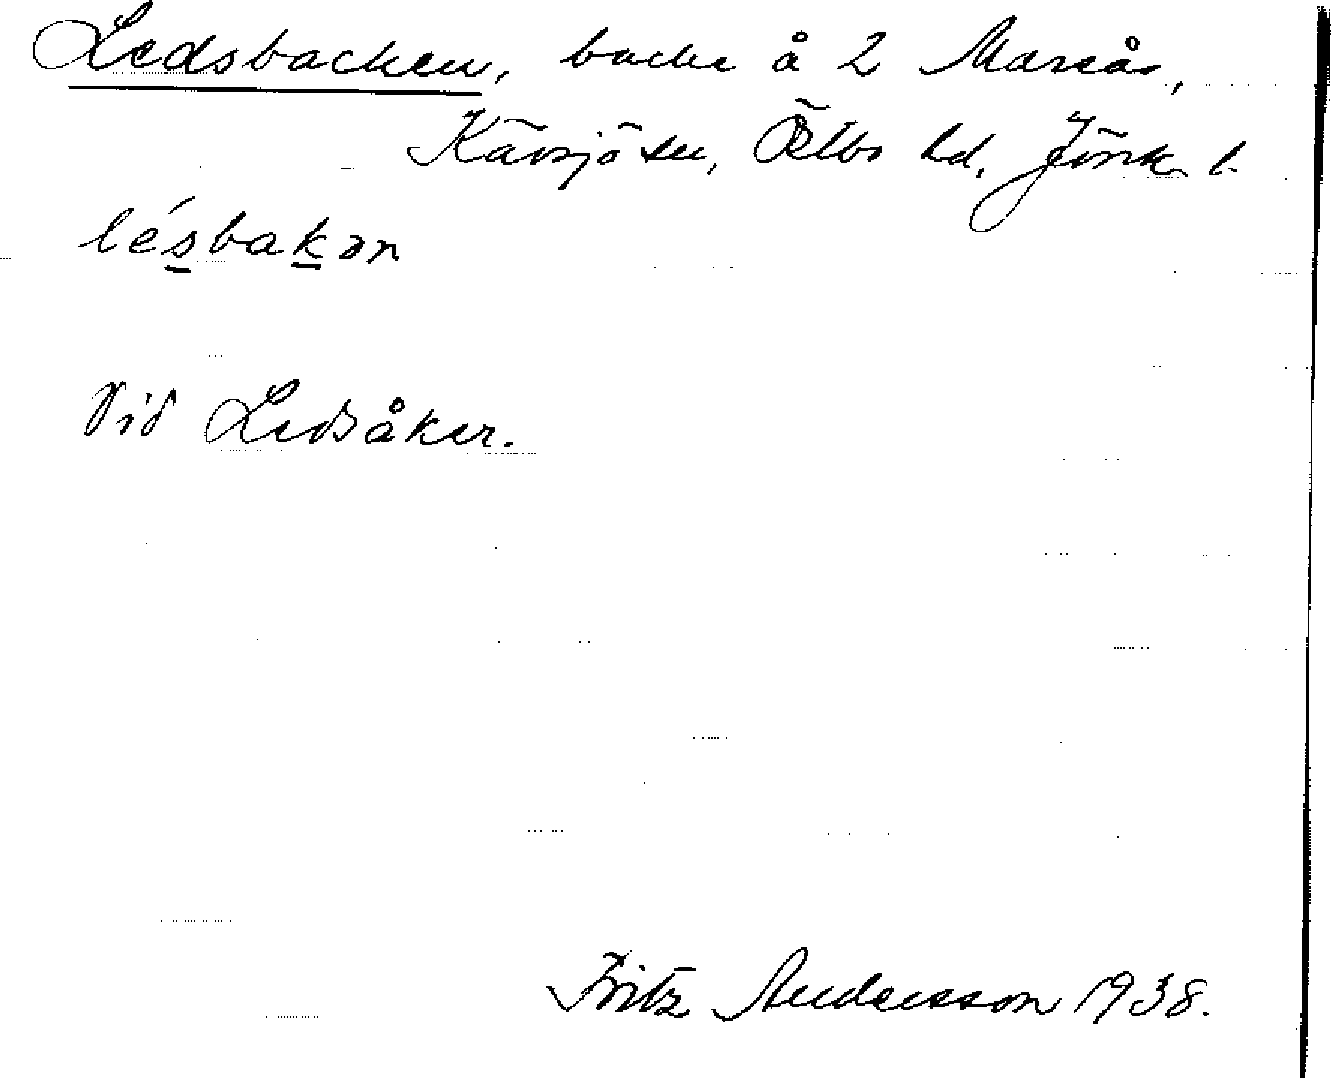 Ledsbacken, backe å 2 Mareås,
Kävsjö sn, Östbo hd, Jönk. l.
lésbakən
Vid Ledsåker.
Fritz Andersson 1938.